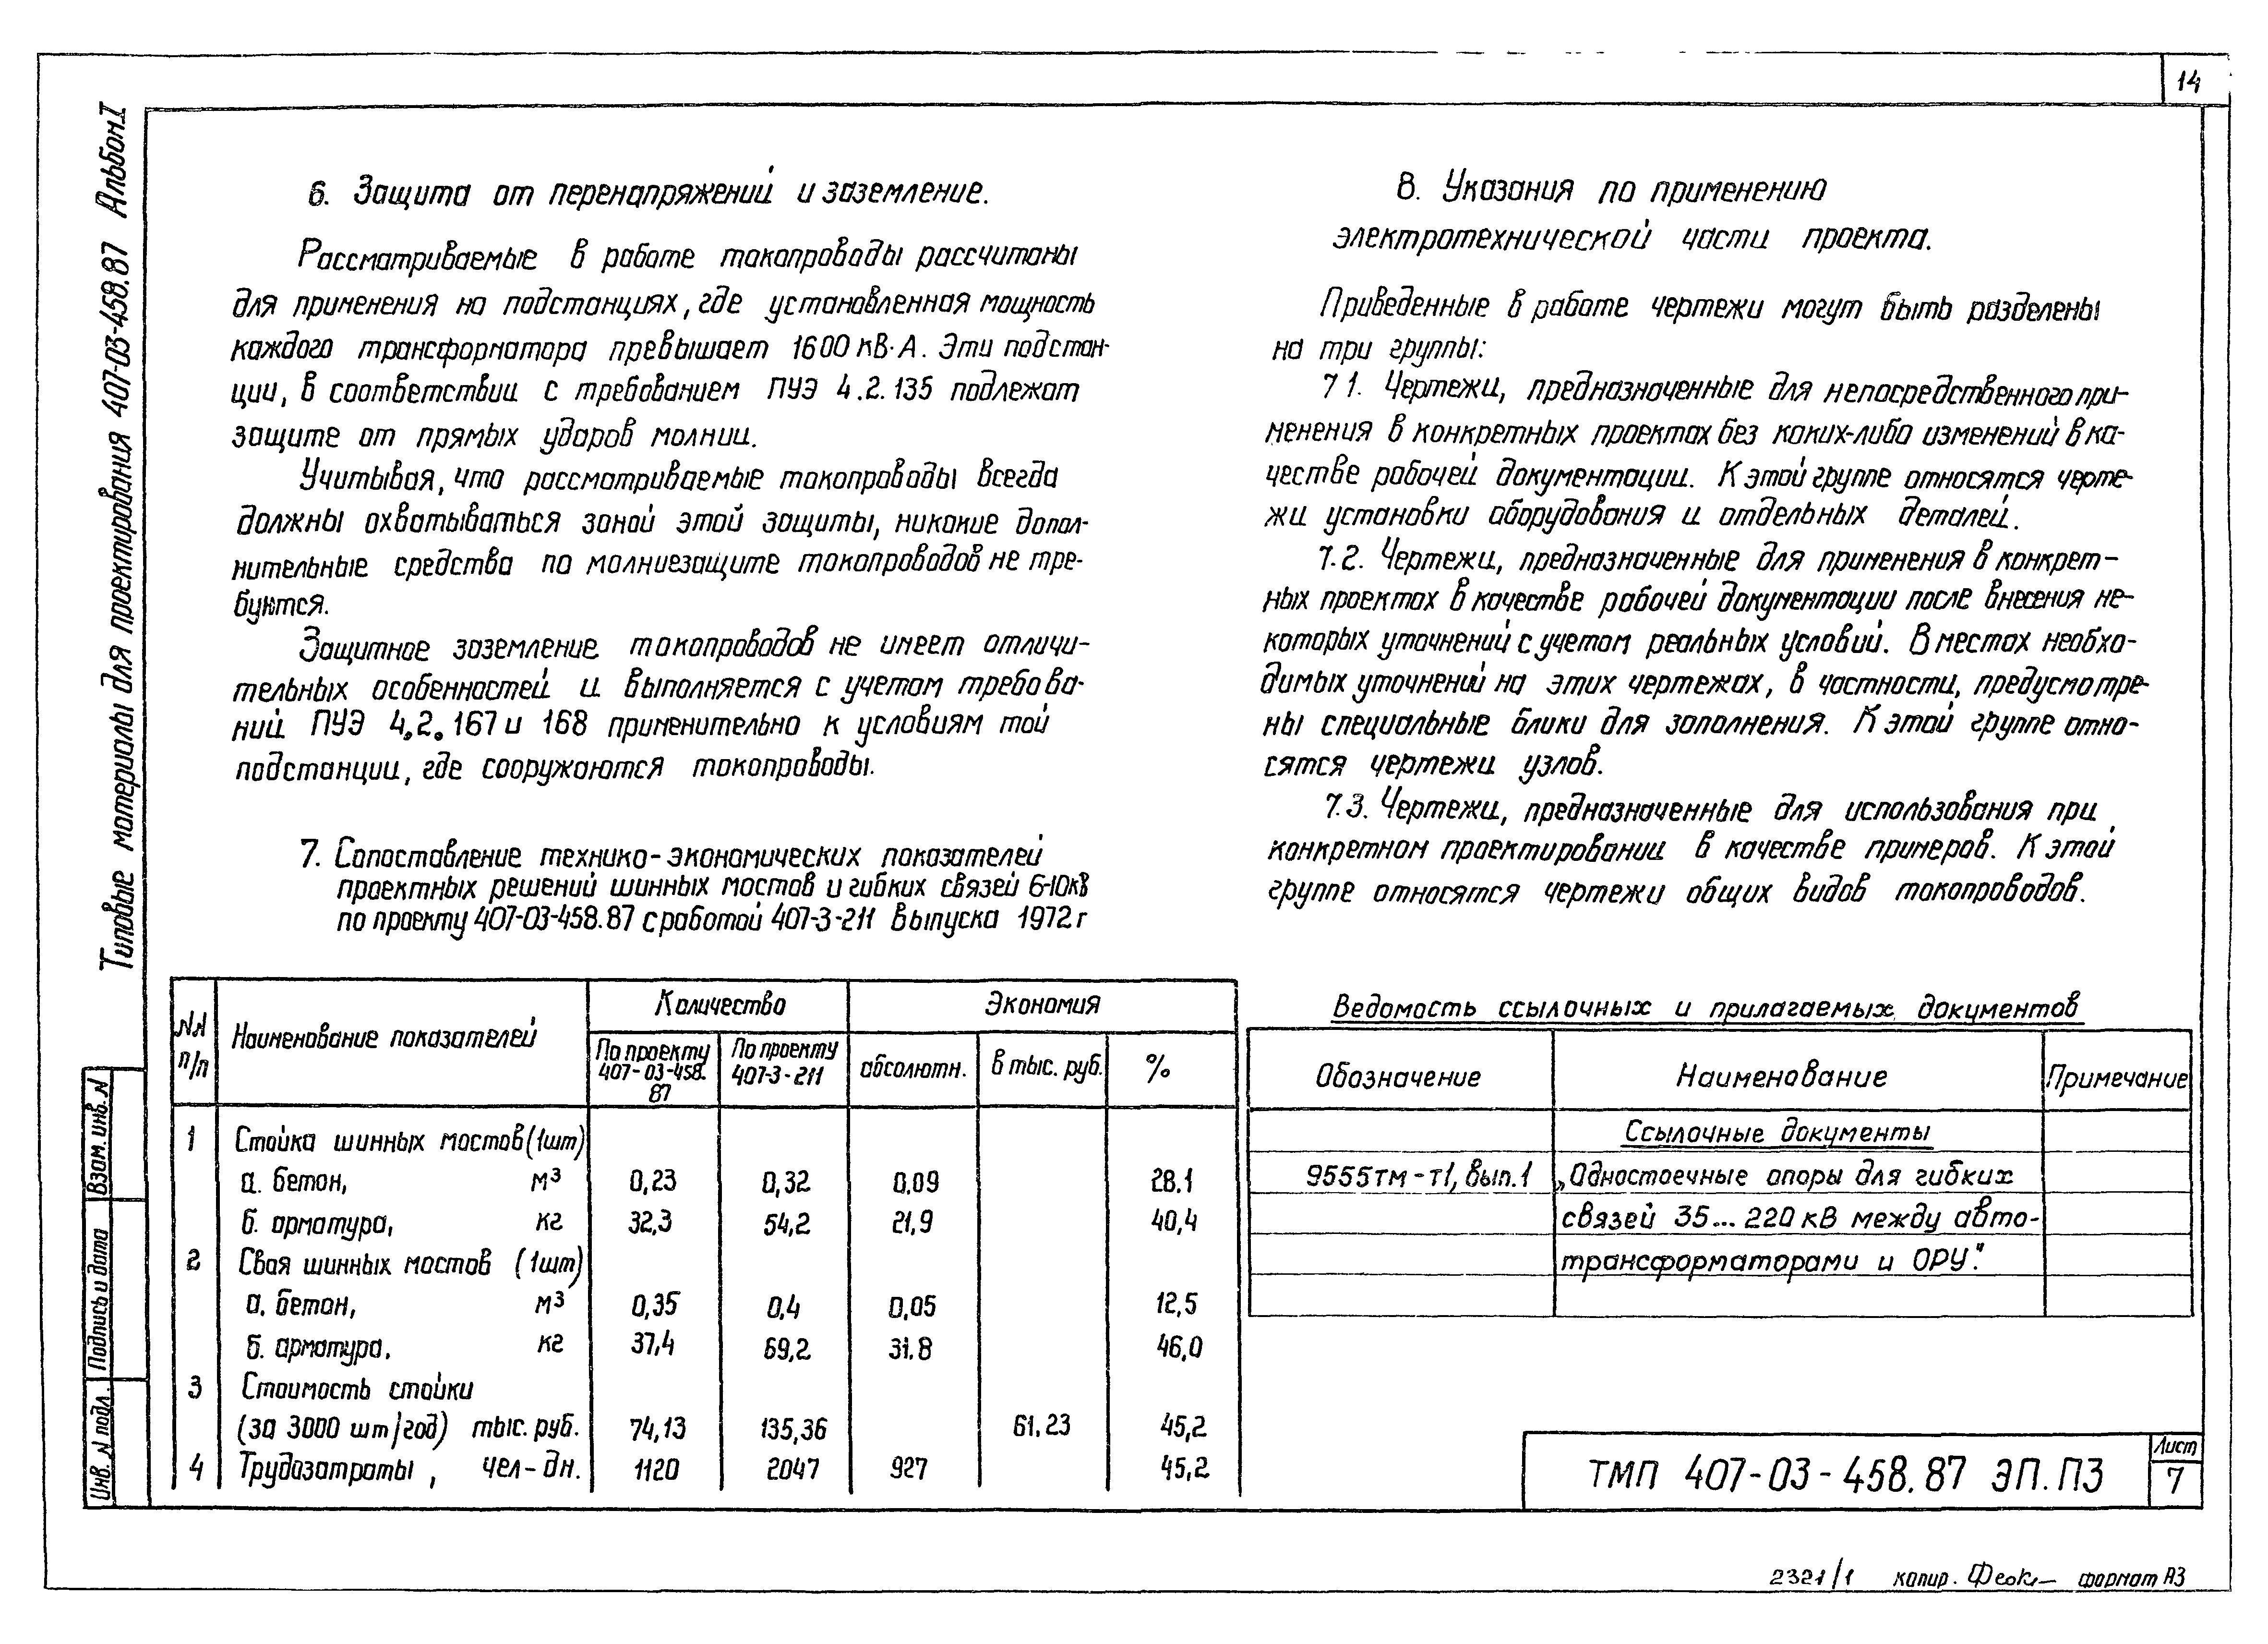 14
Типовые материалы для проектирования 407-03-458.87 Альбом I
6. Защита от перенапряжений и заземление.
Рассматриваемые в работе токопроводы рассчитаны
для применения на подстанциях, где установленная мощность
каждого трансформатора превышает 1600 кВ·А. Эти подстан-
ции, в соответствии с требованием ПУЭ 4.2.135 подлежат
защите от прямых ударов молнии.
Учитывая, что рассматриваемые токопроводы всегда
должны охватываться зоной этой защиты, никакие допол-
нительные средства по молниезащите токопроводов не тре-
буются.
Защитное заземление токопроводов не имеет отличи-
тельных особенностей и выполняется с учетом требова-
ний ПУЭ 4.2.167 и 168 применительно к условиям той
подстанции, где сооружаются токопроводы.
7. Сопоставление технико-экономических показателей
проектных решений шинных мостов и гибких связей 6-10кВ
по проекту 407-03-458.87 с работой 407-3-211 выпуска 1972г
NN п/п
Наименование показателей
Количество
Экономия
По проекту 407-03-458.87
По проекту 407-3-211
абсолютн.
в тыс. руб.
%
1 Стойка шинных мостов (1шт)
а. бетон, м³ 0,23 0,32 0,09 28.1
б. арматура, кг 32,3 54,2 21,9 40,4
2 Свая шинных мостов (1шт)
а. бетон, м³ 0,35 0,4 0,05 12,5
б. арматура. кг 37,4 69,2 31.8 46,0
3 Стоимость стойки
(за 3000 шт/год) тыс. руб. 74,13 135,36 61,23 45,2
4 Трудозатраты, чел-дн. 1120 2047 927 45,2
8. Указания по применению
электротехнической части проекта.
Приведенные в работе чертежи могут быть разделены
на три группы:
7 1. Чертежи, предназначенные для непосредственного при-
менения в конкретных проектах без каких-либо изменений в ка-
честве рабочей документации. К этой группе относятся черте-
жи установки оборудования и отдельных деталей.
7.2. Чертежи, предназначенные для применения в конкрет-
ных проектах в качестве рабочей документации после внесения не-
которых уточнений с учетом реальных условий. В местах необхо-
димых уточнений на этих чертежах, в частности, предусмотре-
ны специальные блики для заполнения. К этой группе отно-
сятся чертежи узлов.
7.3. Чертежи, предназначенные для использования при
конкретном проектировании в качестве примеров. К этой
группе относятся чертежи общих видов токопроводов.
Ведомость ссылочных и прилагаемых документов
Обозначение Наименование Примечание
Ссылочные документы
9555тм-т1, вып.1 „Одностоечные опоры для гибких
связей 35...220 кВ между авто-
трансформаторами и ОРУ."
Взам. инв. N
Подпись и дата
Инв. N подл.
ТМП 407-03-458.87 ЭП.ПЗ
Лист
7
2321/1 копир. Феок- формат А3